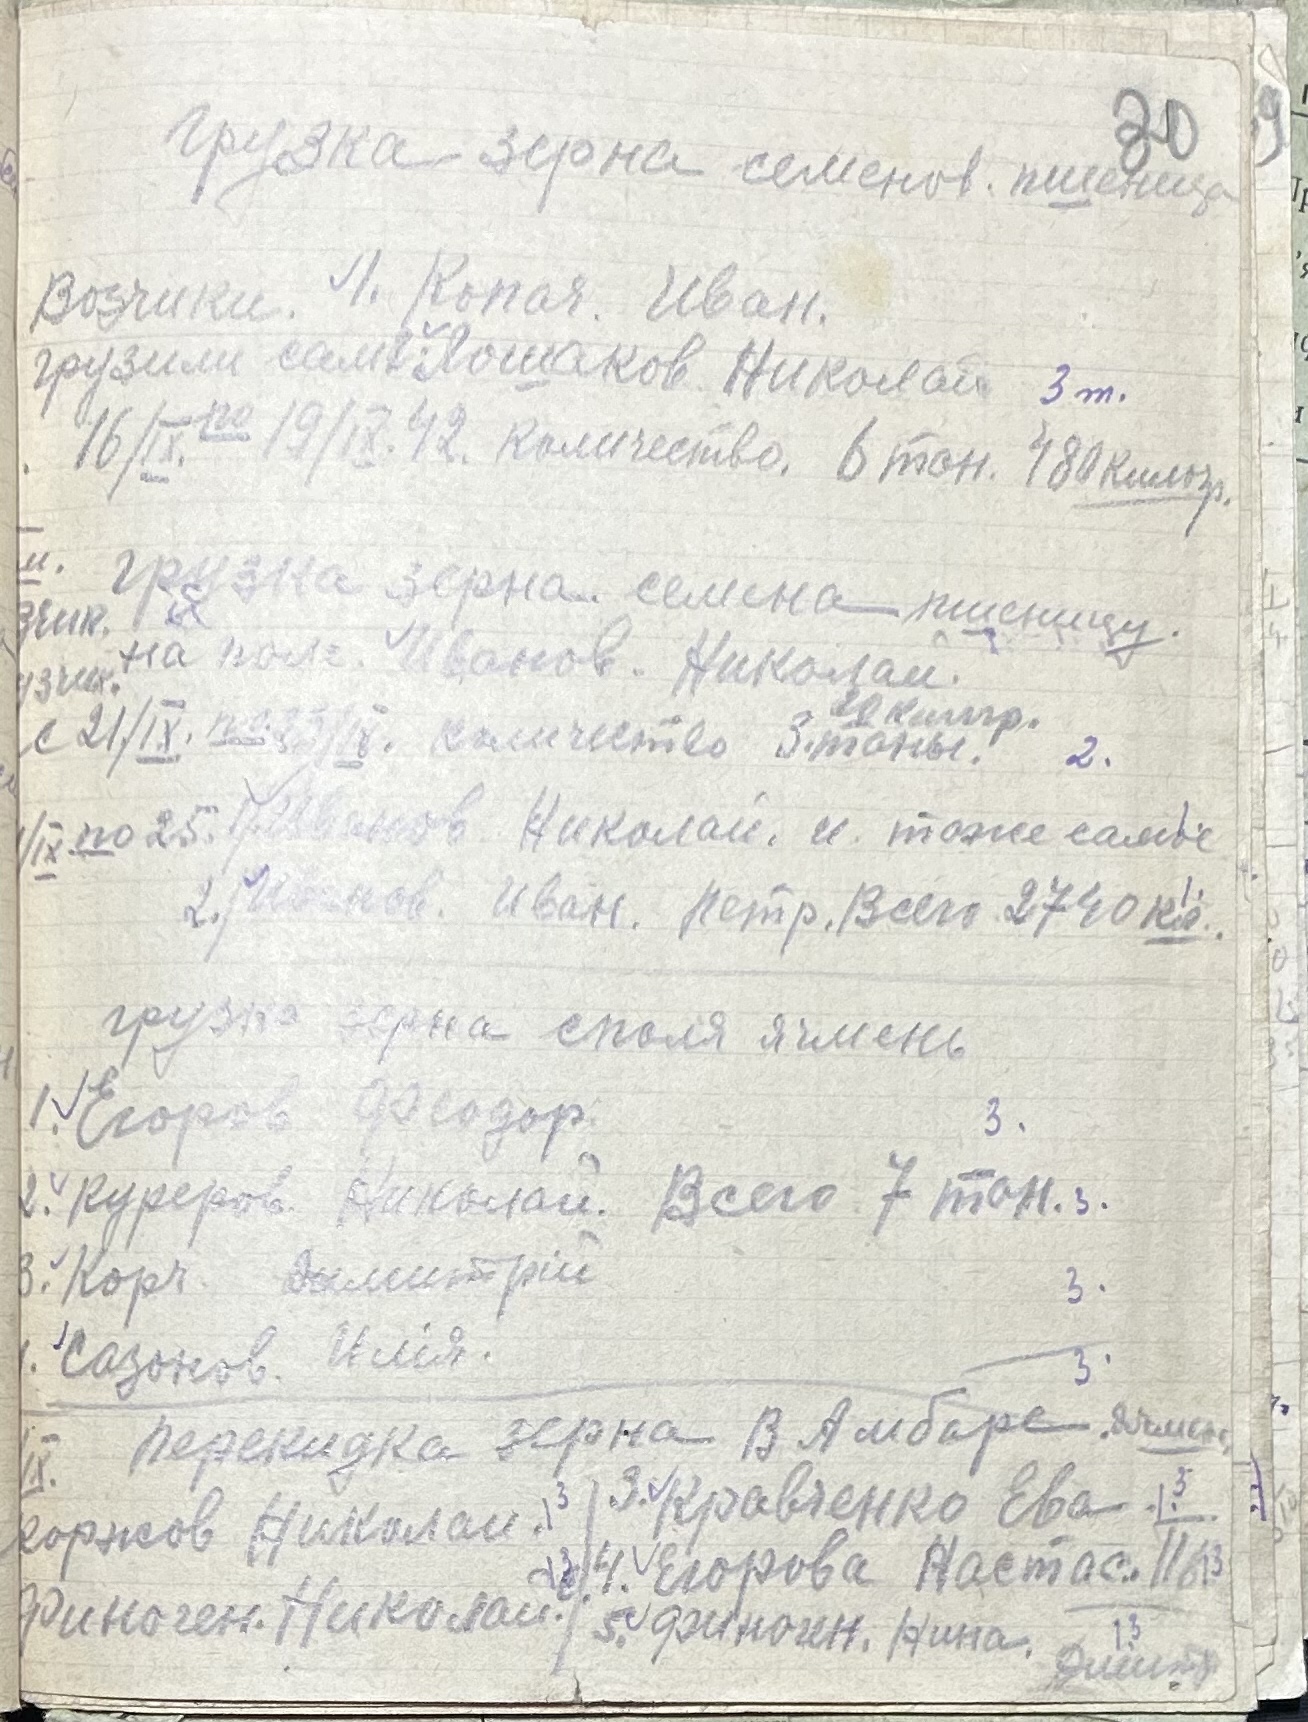 30
грузка зерна семенов. пшеница
Возчики. 1. Копач. Иван.
грузили сами Лошаков Николай 3 т.
16/IX. по 19/IX.42. количество. 6 тон. 480 килогр.
грузка зерна. семена пшеницу.
на поле. Иванов. Николай.
20 килогр.
с 21/IX. по 25/IX. количество 3. тоны. 2.
/IX по 25. 1. Иванов Николай. и. тоже самые
2. Иванов. Иван. Петр. Всего 2740 кил.
грузка зерна споля ячмень
1. Егоров Феодор. 3.
2. Куреров. Николай. Всего 7 тон. 3.
3. Корч. Димитрій 3.
Сазонов. Илія. 3.
IX. перекидка зерна В Амбаре. ячмень
Коржов Николай. 3. Кравченко Ева
4. Егорова Настас.
Финоген. Николай. 5. Финоген. Нина.